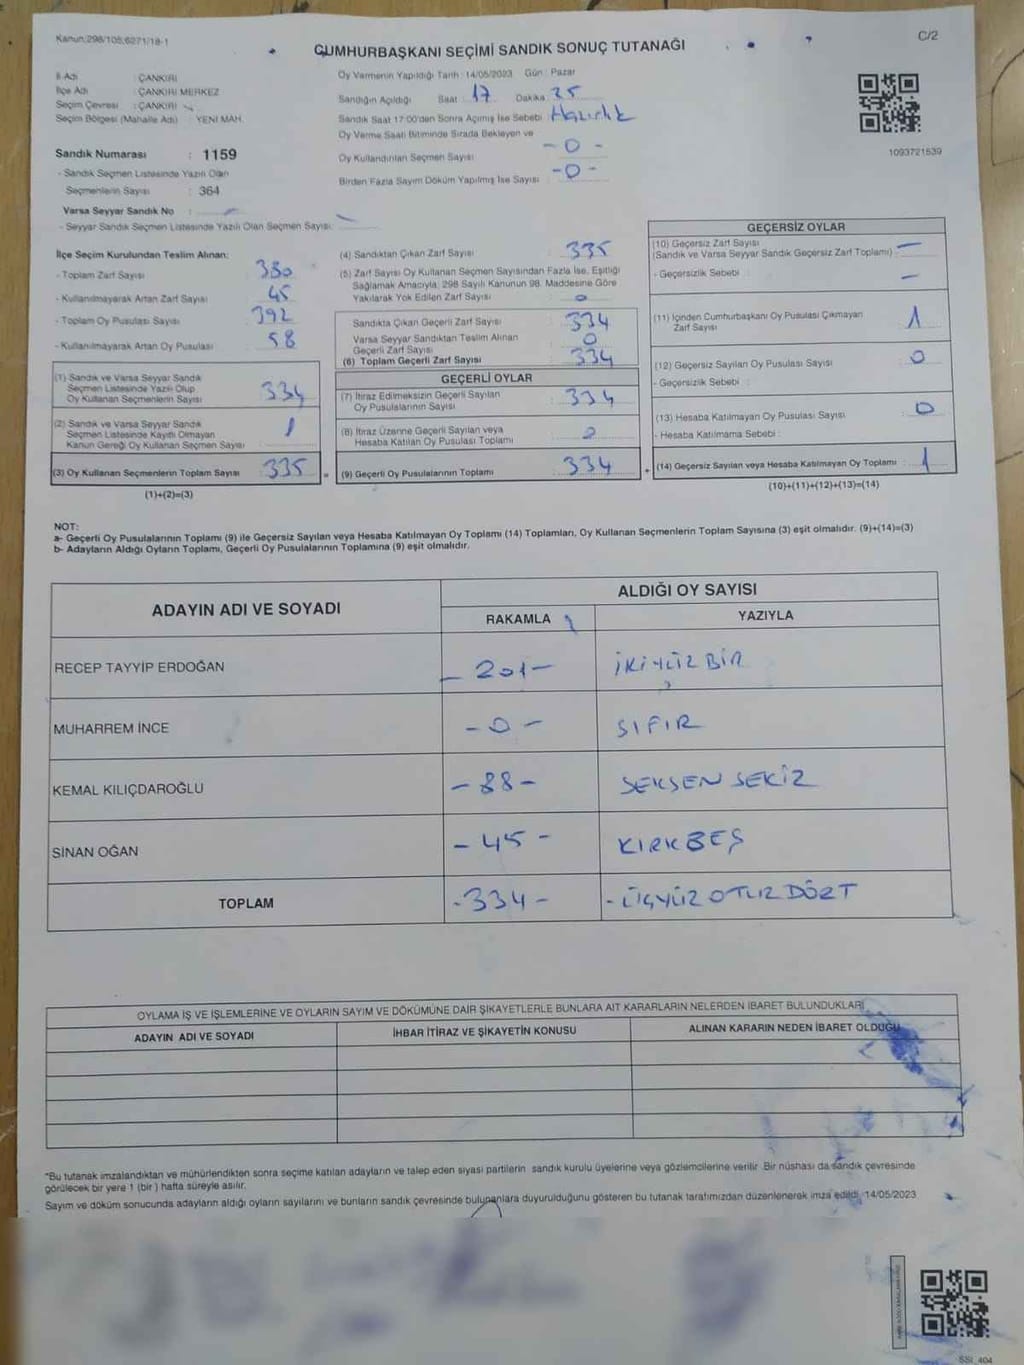 Kanun:298/105,6271/18-1
C/2
CUMHURBAŞKANI SEÇİMİ SANDIK SONUÇ TUTANAĞI
İl Adı : ÇANKIRI
İlçe Adı : ÇANKIRI MERKEZ
Seçim Çevresi : ÇANKIRI
Seçim Bölgesi (Mahalle Adı) : YENİ MAH.
Sandık Numarası : 1159
- Sandık Seçmen Listesinde Yazılı Olan
Seçmenlerin Sayısı : 364
Varsa Seyyar Sandık No :
- Seyyar Sandık Seçmen Listesinde Yazılı Olan Seçmen Sayısı:
Oy Vermenin Yapıldığı Tarih : 14/05/2023 Gün : Pazar
Sandığın Açıldığı Saat : 17 Dakika : 25
Sandık Saat 17:00'den Sonra Açılmış İse Sebebi : Hazırlık
Oy Verme Saati Bitiminde Sırada Bekleyen ve
Oy Kullandırılan Seçmen Sayısı : - 0 -
Birden Fazla Sayım Döküm Yapılmış İse Sayısı : - 0 -
1093721539
İlçe Seçim Kurulundan Teslim Alınan:
- Toplam Zarf Sayısı : 380
- Kullanılmayarak Artan Zarf Sayısı : 45
- Toplam Oy Pusulası Sayısı : 392
- Kullanılmayarak Artan Oy Pusulası : 58
(1) Sandık ve Varsa Seyyar Sandık
Seçmen Listesinde Yazılı Olup
Oy Kullanan Seçmenlerin Sayısı : 334
(2) Sandık ve Varsa Seyyar Sandık
Seçmen Listesinde Kayıtlı Olmayan
Kanun Gereği Oy Kullanan Seçmen Sayısı : 1
(3) Oy Kullanan Seçmenlerin Toplam Sayısı : 335 =
(1)+(2)=(3)
(4) Sandıktan Çıkan Zarf Sayısı : 335
(5) Zarf Sayısı Oy Kullanan Seçmen Sayısından Fazla İse, Eşitliği
Sağlamak Amacıyla, 298 Sayılı Kanunun 98. Maddesine Göre
Yakılarak Yok Edilen Zarf Sayısı : 0
Sandıkta Çıkan Geçerli Zarf Sayısı : 334
Varsa Seyyar Sandıktan Teslim Alınan
Geçerli Zarf Sayısı : 0
(6) Toplam Geçerli Zarf Sayısı : 334
GEÇERLİ OYLAR
(7) İtiraz Edilmeksizin Geçerli Sayılan
Oy Pusulalarının Sayısı : 334
(8) İtiraz Üzerine Geçerli Sayılan veya
Hesaba Katılan Oy Pusulası Toplamı : 0
(9) Geçerli Oy Pusulalarının Toplamı : 334 +
GEÇERSİZ OYLAR
(10) Geçersiz Zarf Sayısı
(Sandık ve Varsa Seyyar Sandık Geçersiz Zarf Toplamı) : —
- Geçersizlik Sebebi : —
(11) İçinden Cumhurbaşkanı Oy Pusulası Çıkmayan
Zarf Sayısı : 1
(12) Geçersiz Sayılan Oy Pusulası Sayısı : 0
- Geçersizlik Sebebi :
(13) Hesaba Katılmayan Oy Pusulası Sayısı : 0
- Hesaba Katılmama Sebebi :
(14) Geçersiz Sayılan veya Hesaba Katılmayan Oy Toplamı : 1
(10)+(11)+(12)+(13)=(14)
NOT:
a- Geçerli Oy Pusulalarının Toplamı (9) ile Geçersiz Sayılan veya Hesaba Katılmayan Oy Toplamı (14) Toplamları, Oy Kullanan Seçmenlerin Toplam Sayısına (3) eşit olmalıdır. (9)+(14)=(3)
b- Adayların Aldığı Oyların Toplamı, Geçerli Oy Pusulalarının Toplamına (9) eşit olmalıdır.
ADAYIN ADI VE SOYADI
ALDIĞI OY SAYISI
RAKAMLA YAZIYLA
RECEP TAYYİP ERDOĞAN - 201 - İKİYÜZ BİR
MUHARREM İNCE - 0 - SIFIR
KEMAL KILIÇDAROĞLU - 88 - SEKSEN SEKİZ
SİNAN OĞAN - 45 - KIRK BEŞ
TOPLAM - 334 - - ÜÇYÜZ OTUZ DÖRT
OYLAMA İŞ VE İŞLEMLERİNE VE OYLARIN SAYIM VE DÖKÜMÜNE DAİR ŞİKAYETLERLE BUNLARA AİT KARARLARIN NELERDEN İBARET BULUNDUKLARI
ADAYIN ADI VE SOYADI İHBAR İTİRAZ VE ŞİKAYETİN KONUSU ALINAN KARARIN NEDEN İBARET OLDUĞU
*Bu tutanak imzalandıktan ve mühürlendikten sonra seçime katılan adayların ve talep eden siyasi partilerin sandık kurulu üyelerine veya gözlemcilerine verilir. Bir nüshası da sandık çevresinde
görülecek bir yere 1 (bir) hafta süreyle asılır.
Sayım ve döküm sonucunda adayların aldığı oyların sayılarını ve bunların sandık çevresinde bulunanlara duyurulduğunu gösteren bu tutanak tarafımızdan düzenlenerek imza edildi. 14/05/2023
SSI_404